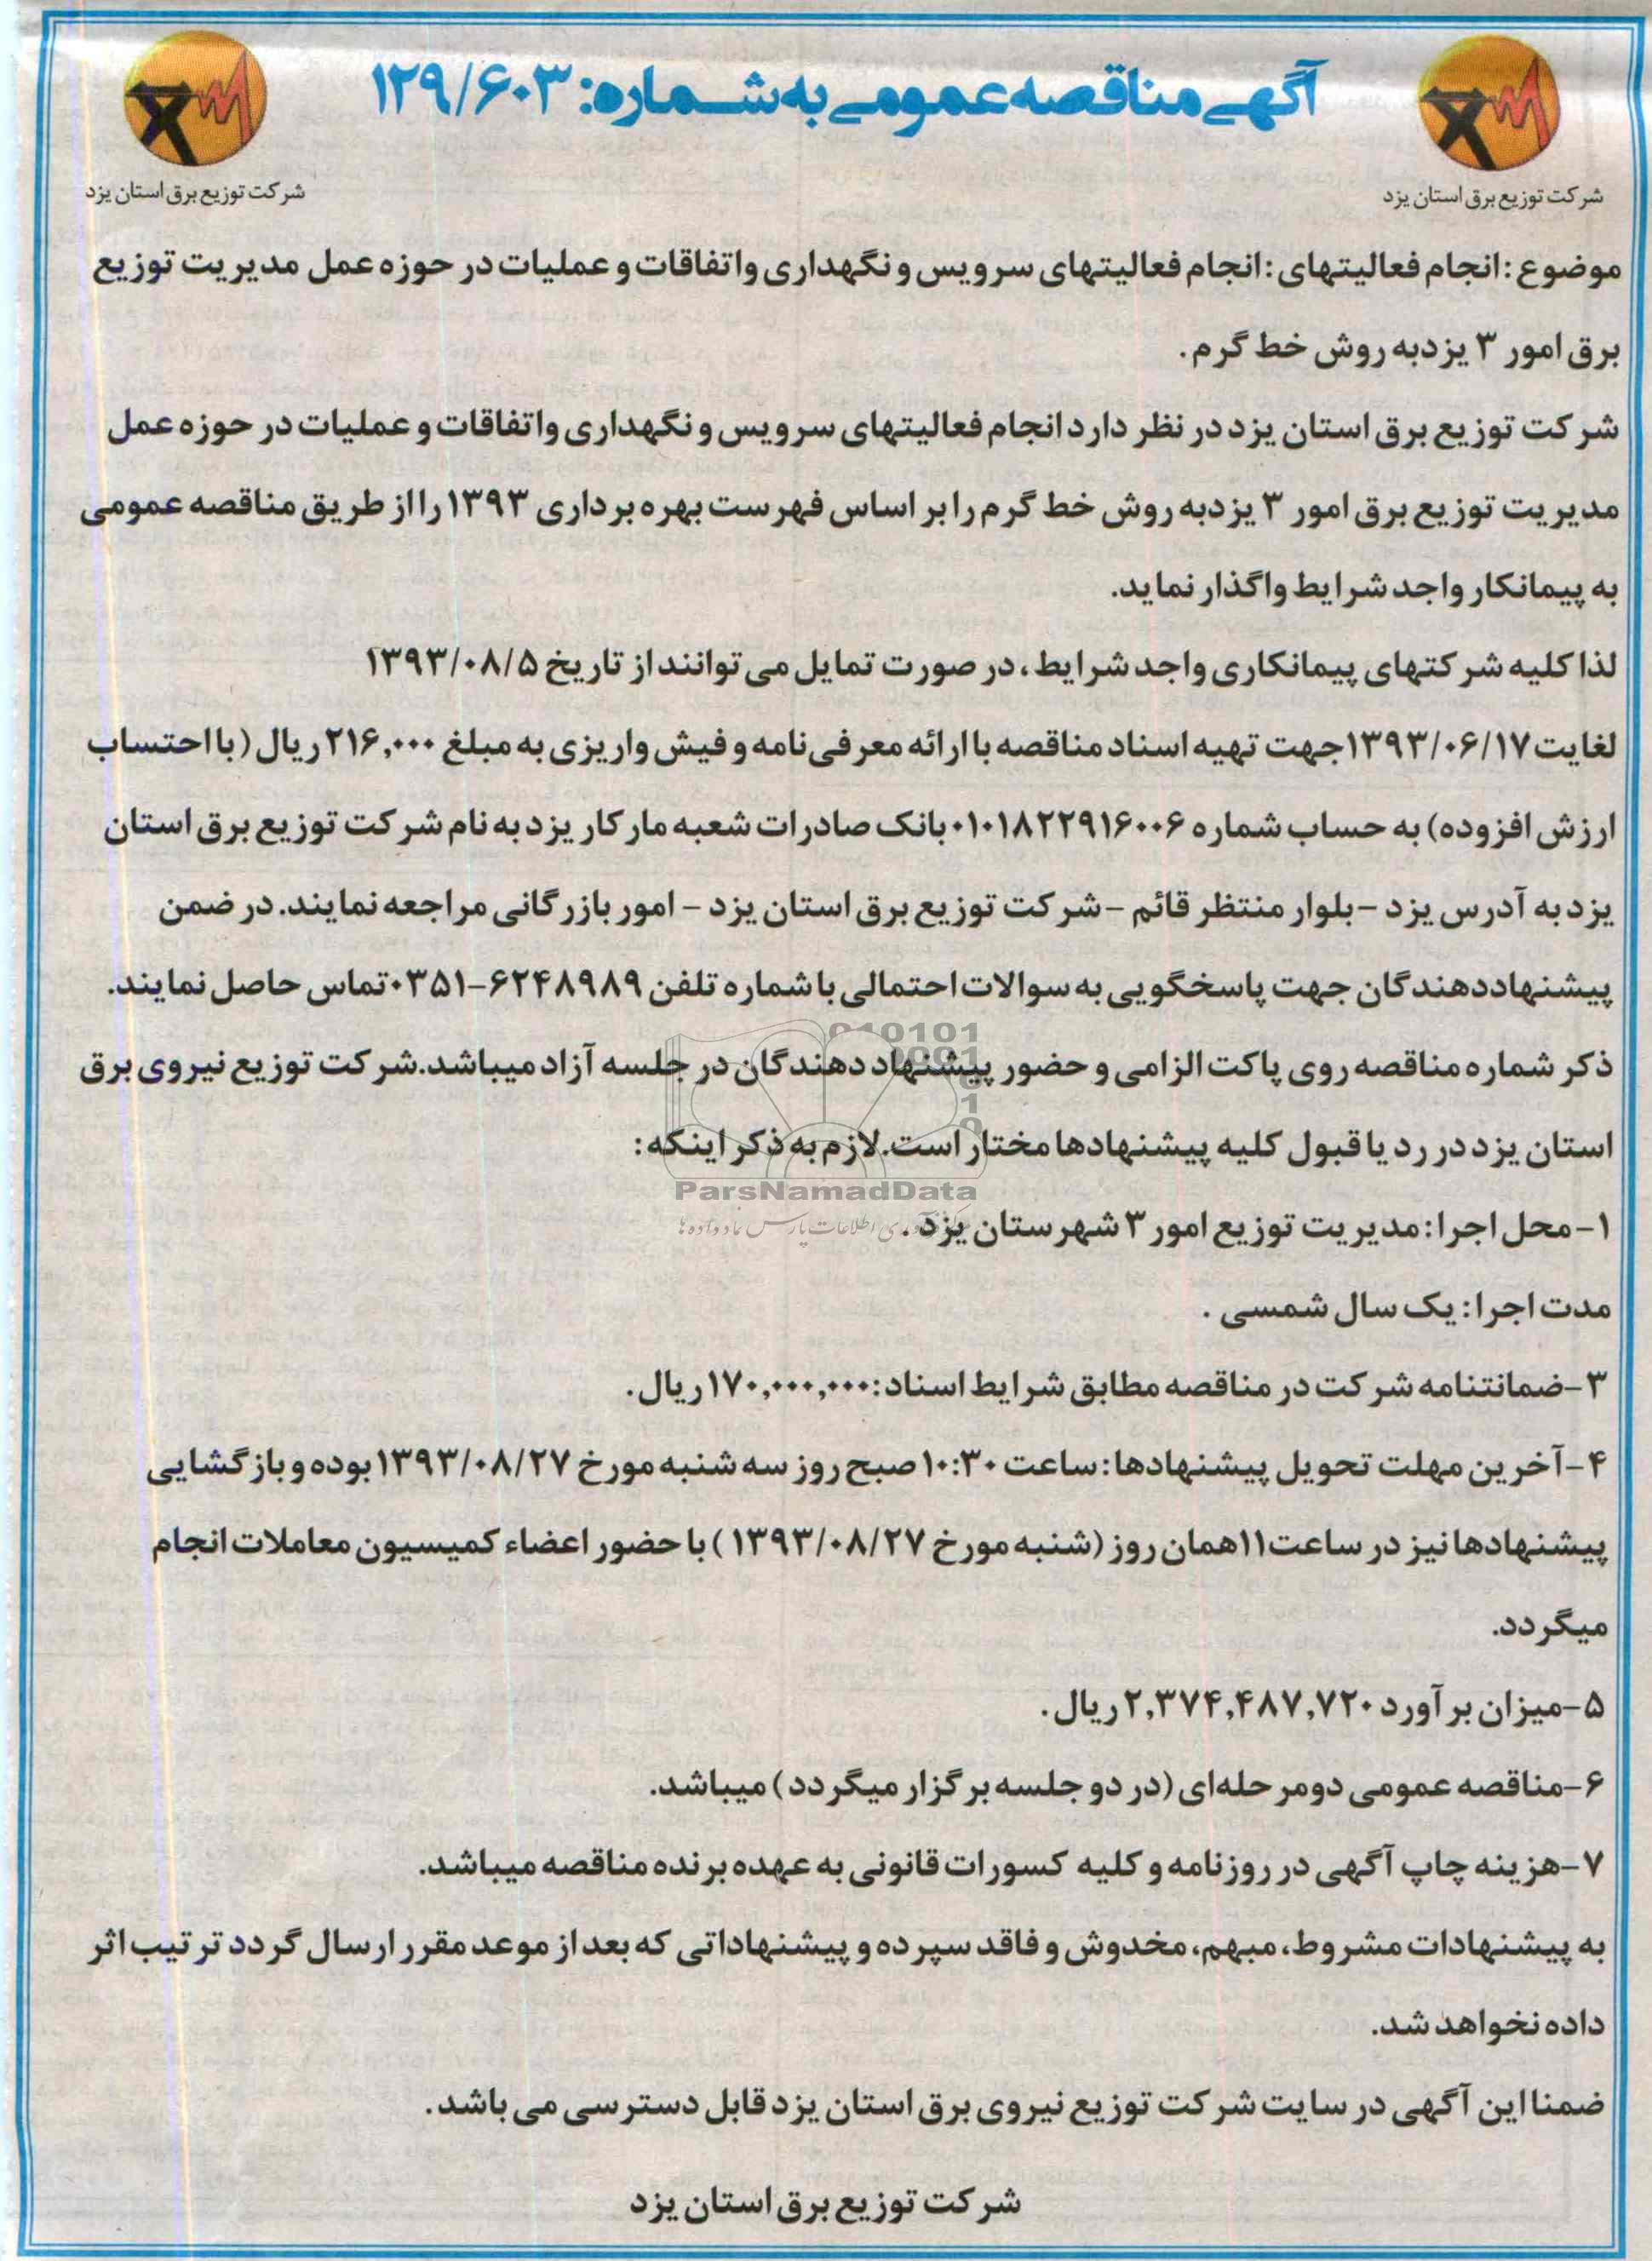 آگهی مناقصه عمومی به شماره: ۱۲۹/۶۰۳
شرکت توزیع برق استان یزد
شرکت توزیع برق استان یزد
موضوع: انجام فعالیتهای: انجام فعالیتهای سرویس و نگهداری و اتفاقات و عملیات در حوزه عمل مدیریت توزیع
برق امور ۳ یزد به روش خط گرم.
شرکت توزیع برق استان یزد در نظر دارد انجام فعالیتهای سرویس و نگهداری و اتفاقات و عملیات در حوزه عمل
مدیریت توزیع برق امور ۳ یزد به روش خط گرم را بر اساس فهرست بهره برداری ۱۳۹۳ را از طریق مناقصه عمومی
به پیمانکار واجد شرایط واگذار نماید.
لذا کلیه شرکتهای پیمانکاری واجد شرایط، در صورت تمایل می توانند از تاریخ ۱۳۹۳/۰۸/۵
لغایت ۱۳۹۳/۰۶/۱۷ جهت تهیه اسناد مناقصه با ارائه معرفی نامه و فیش واریزی به مبلغ ۲۱۶,۰۰۰ ریال (با احتساب
ارزش افزوده) به حساب شماره ۰۱۰۱۸۲۲۹۱۶۰۰۶ بانک صادرات شعبه مارکار یزد به نام شرکت توزیع برق استان
یزد به آدرس یزد - بلوار منتظر قائم - شرکت توزیع برق استان یزد - امور بازرگانی مراجعه نمایند. در ضمن
پیشنهاددهندگان جهت پاسخگویی به سوالات احتمالی با شماره تلفن ۶۲۴۸۹۸۹-۰۳۵۱ تماس حاصل نمایند.
ذکر شماره مناقصه روی پاکت الزامی و حضور پیشنهاد دهندگان در جلسه آزاد میباشد. شرکت توزیع نیروی برق
استان یزد در رد یا قبول کلیه پیشنهادها مختار است. لازم به ذکر اینکه:
ParsNamadData
۱- محل اجرا: مدیریت توزیع امور ۳ شهرستان یزد.
مدت اجرا: یک سال شمسی .
۳- ضمانتنامه شرکت در مناقصه مطابق شرایط اسناد: ۱۷۰,۰۰۰,۰۰۰ ریال.
۴- آخرین مهلت تحویل پیشنهادها: ساعت ۱۰:۳۰ صبح روز سه شنبه مورخ ۱۳۹۳/۰۸/۲۷ بوده و بازگشایی
پیشنهادها نیز در ساعت ۱۱ همان روز (شنبه مورخ ۱۳۹۳/۰۸/۲۷) با حضور اعضاء کمیسیون معاملات انجام
میگردد.
۵- میزان برآورد ۲,۳۷۴,۴۸۷,۷۲۰ ریال.
۶- مناقصه عمومی دومرحله‌ای (در دو جلسه برگزار میگردد) میباشد.
۷- هزینه چاپ آگهی در روزنامه و کلیه کسورات قانونی به عهده برنده مناقصه میباشد.
به پیشنهادات مشروط، مبهم، مخدوش و فاقد سپرده و پیشنهاداتی که بعد از موعد مقرر ارسال گردد ترتیب اثر
داده نخواهد شد.
ضمنا این آگهی در سایت شرکت توزیع نیروی برق استان یزد قابل دسترسی می باشد.
شرکت توزیع برق استان یزد